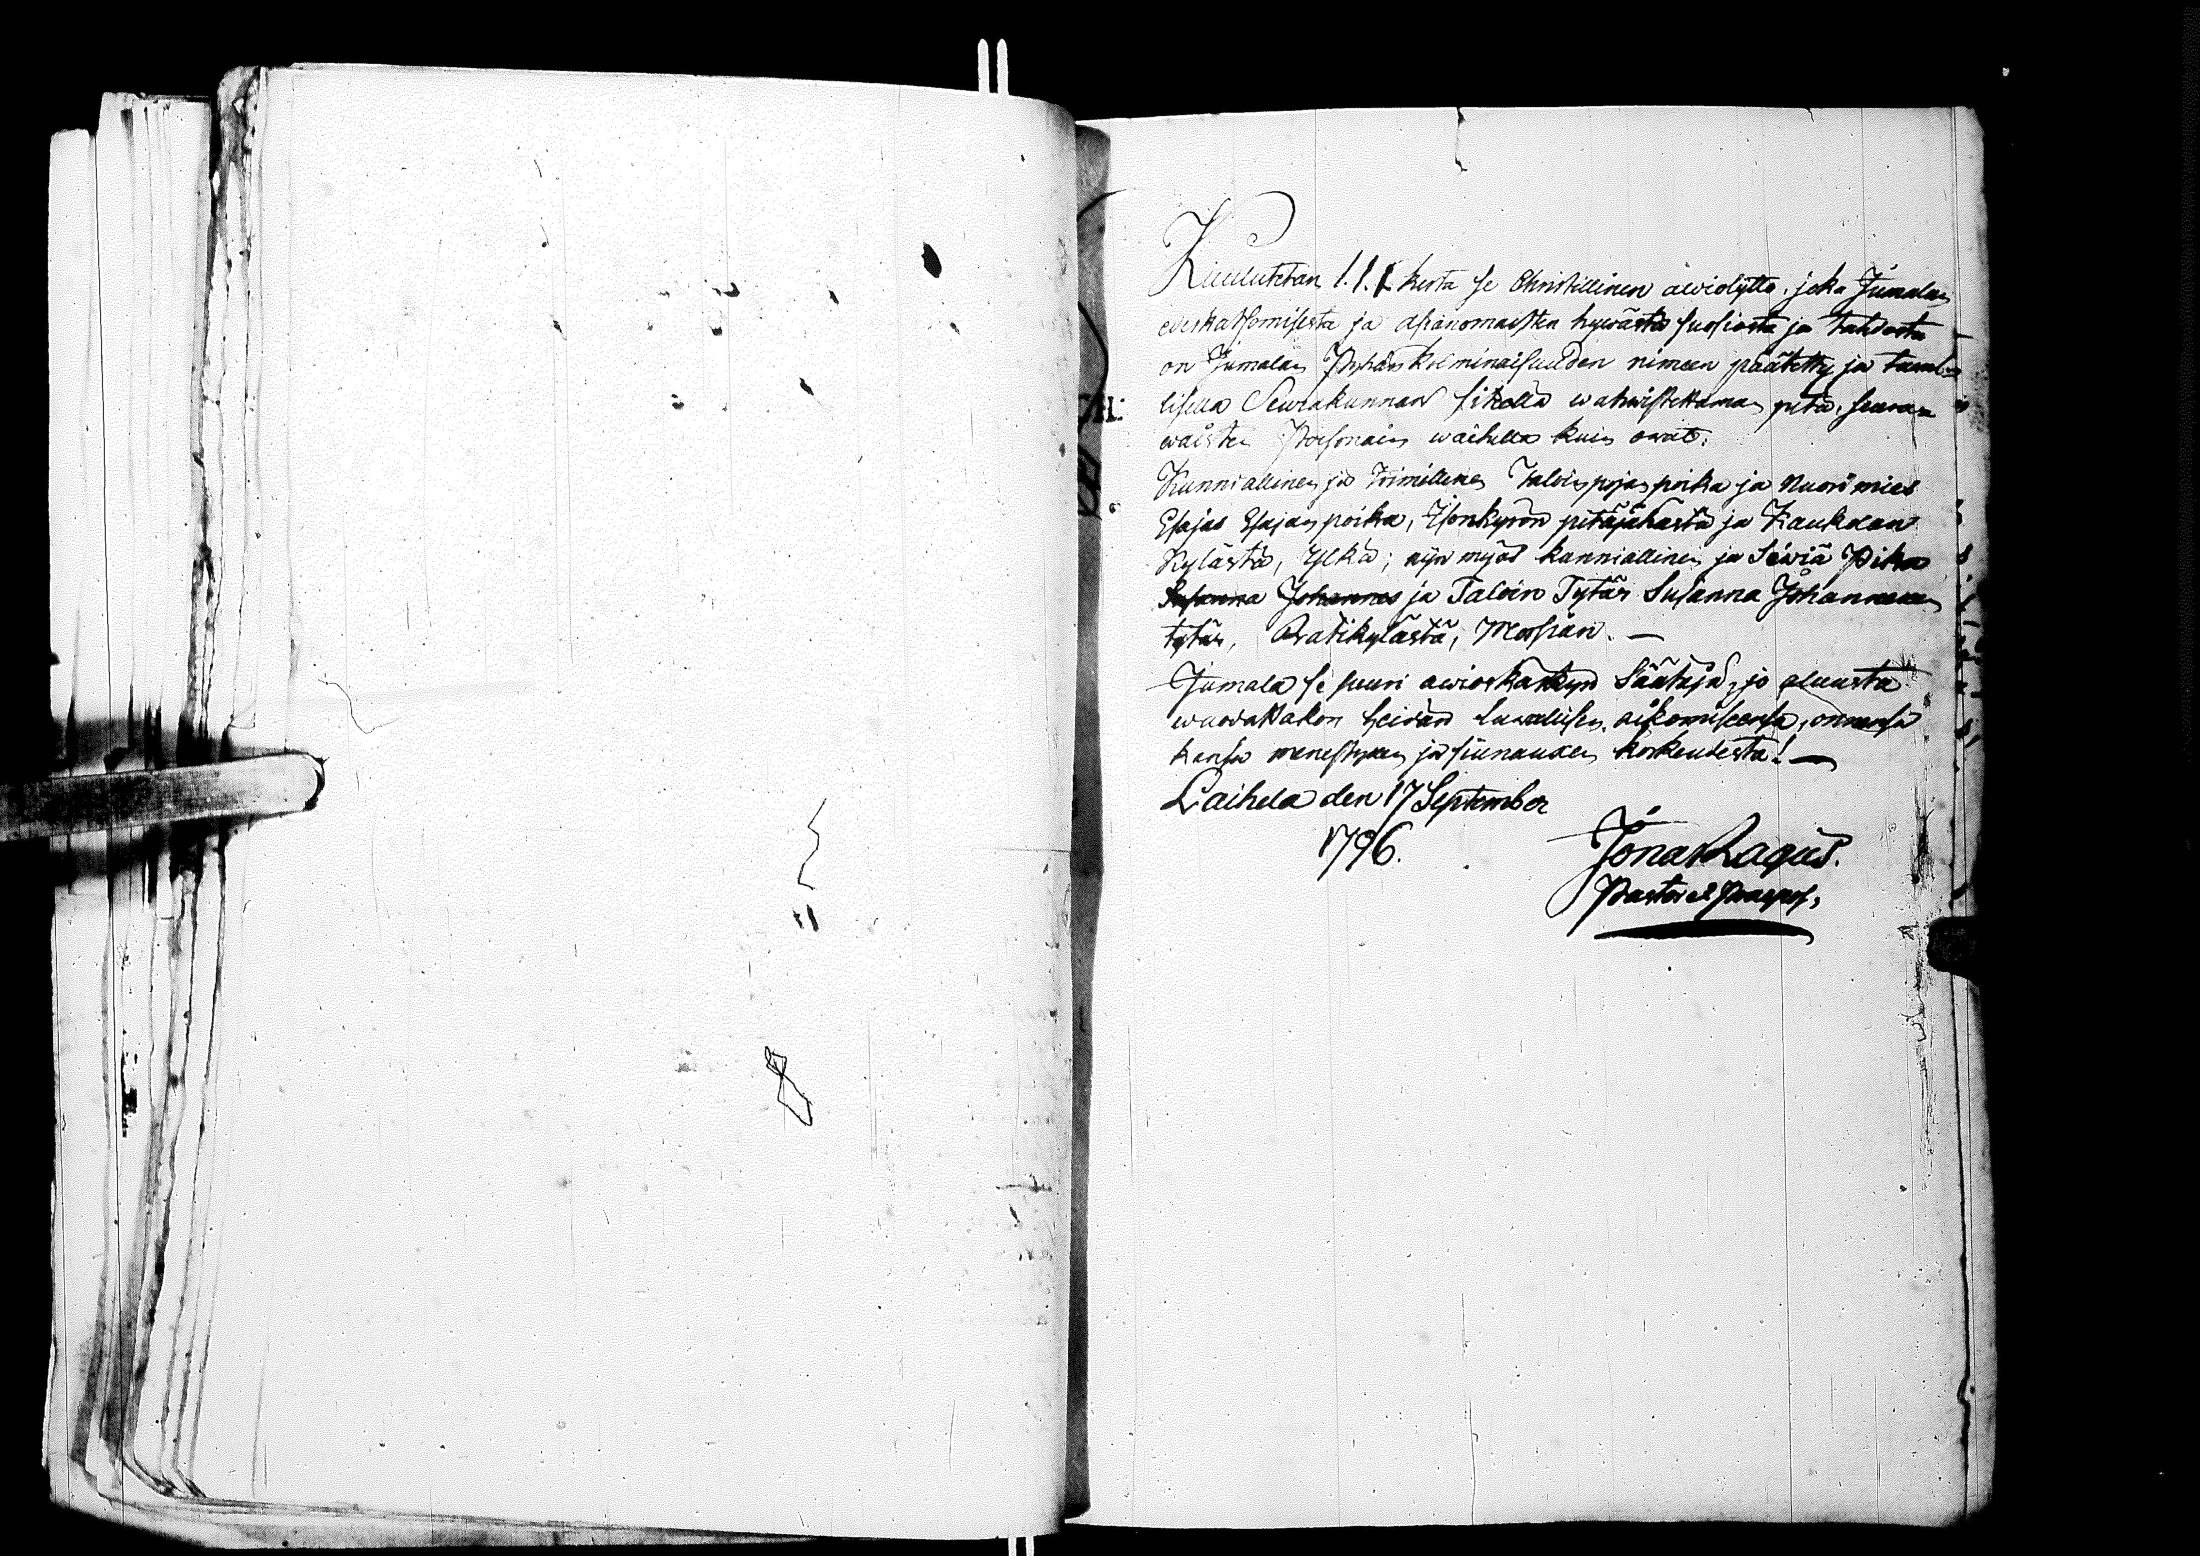 Kuulutetan 1. 1. 1. kerta se Christillinen awiolijtto, joka Jumalan
edeskatsomisesta ja asianomaisten hywästä suosiosta ja tahdosta
on Jumalan Pyhän kolminaisuuden nimeen päätetty ja
lisella Seurakunnan wahwistettaman pitä, seura-
waisten Personain wäihellä kuin owat:
Kunniallinen ja toimillinen Taloinpojan poika ja Nuori mies
Esajas Esajan poika, Isonkyrön pitäjähästä ja Kaukolan
Kylästä, Ylkä; nijn myös kunniallinen ja Siwiä Pika
Susanna Johannes ja Taloin Tytär Susanna Johannexen
tytär, Ratikylästä, Morsian. —
Jumala se suuri awioskäskyn Säätäjä, jo alusta
wuodattakon heidän luwallisen aikomisensa, onnensa
kansa menestyxen ja siunauxen korkeudesta! —
Laihela den 17 September
1796.
Jonas Lagus.
Pastor et Praepos.